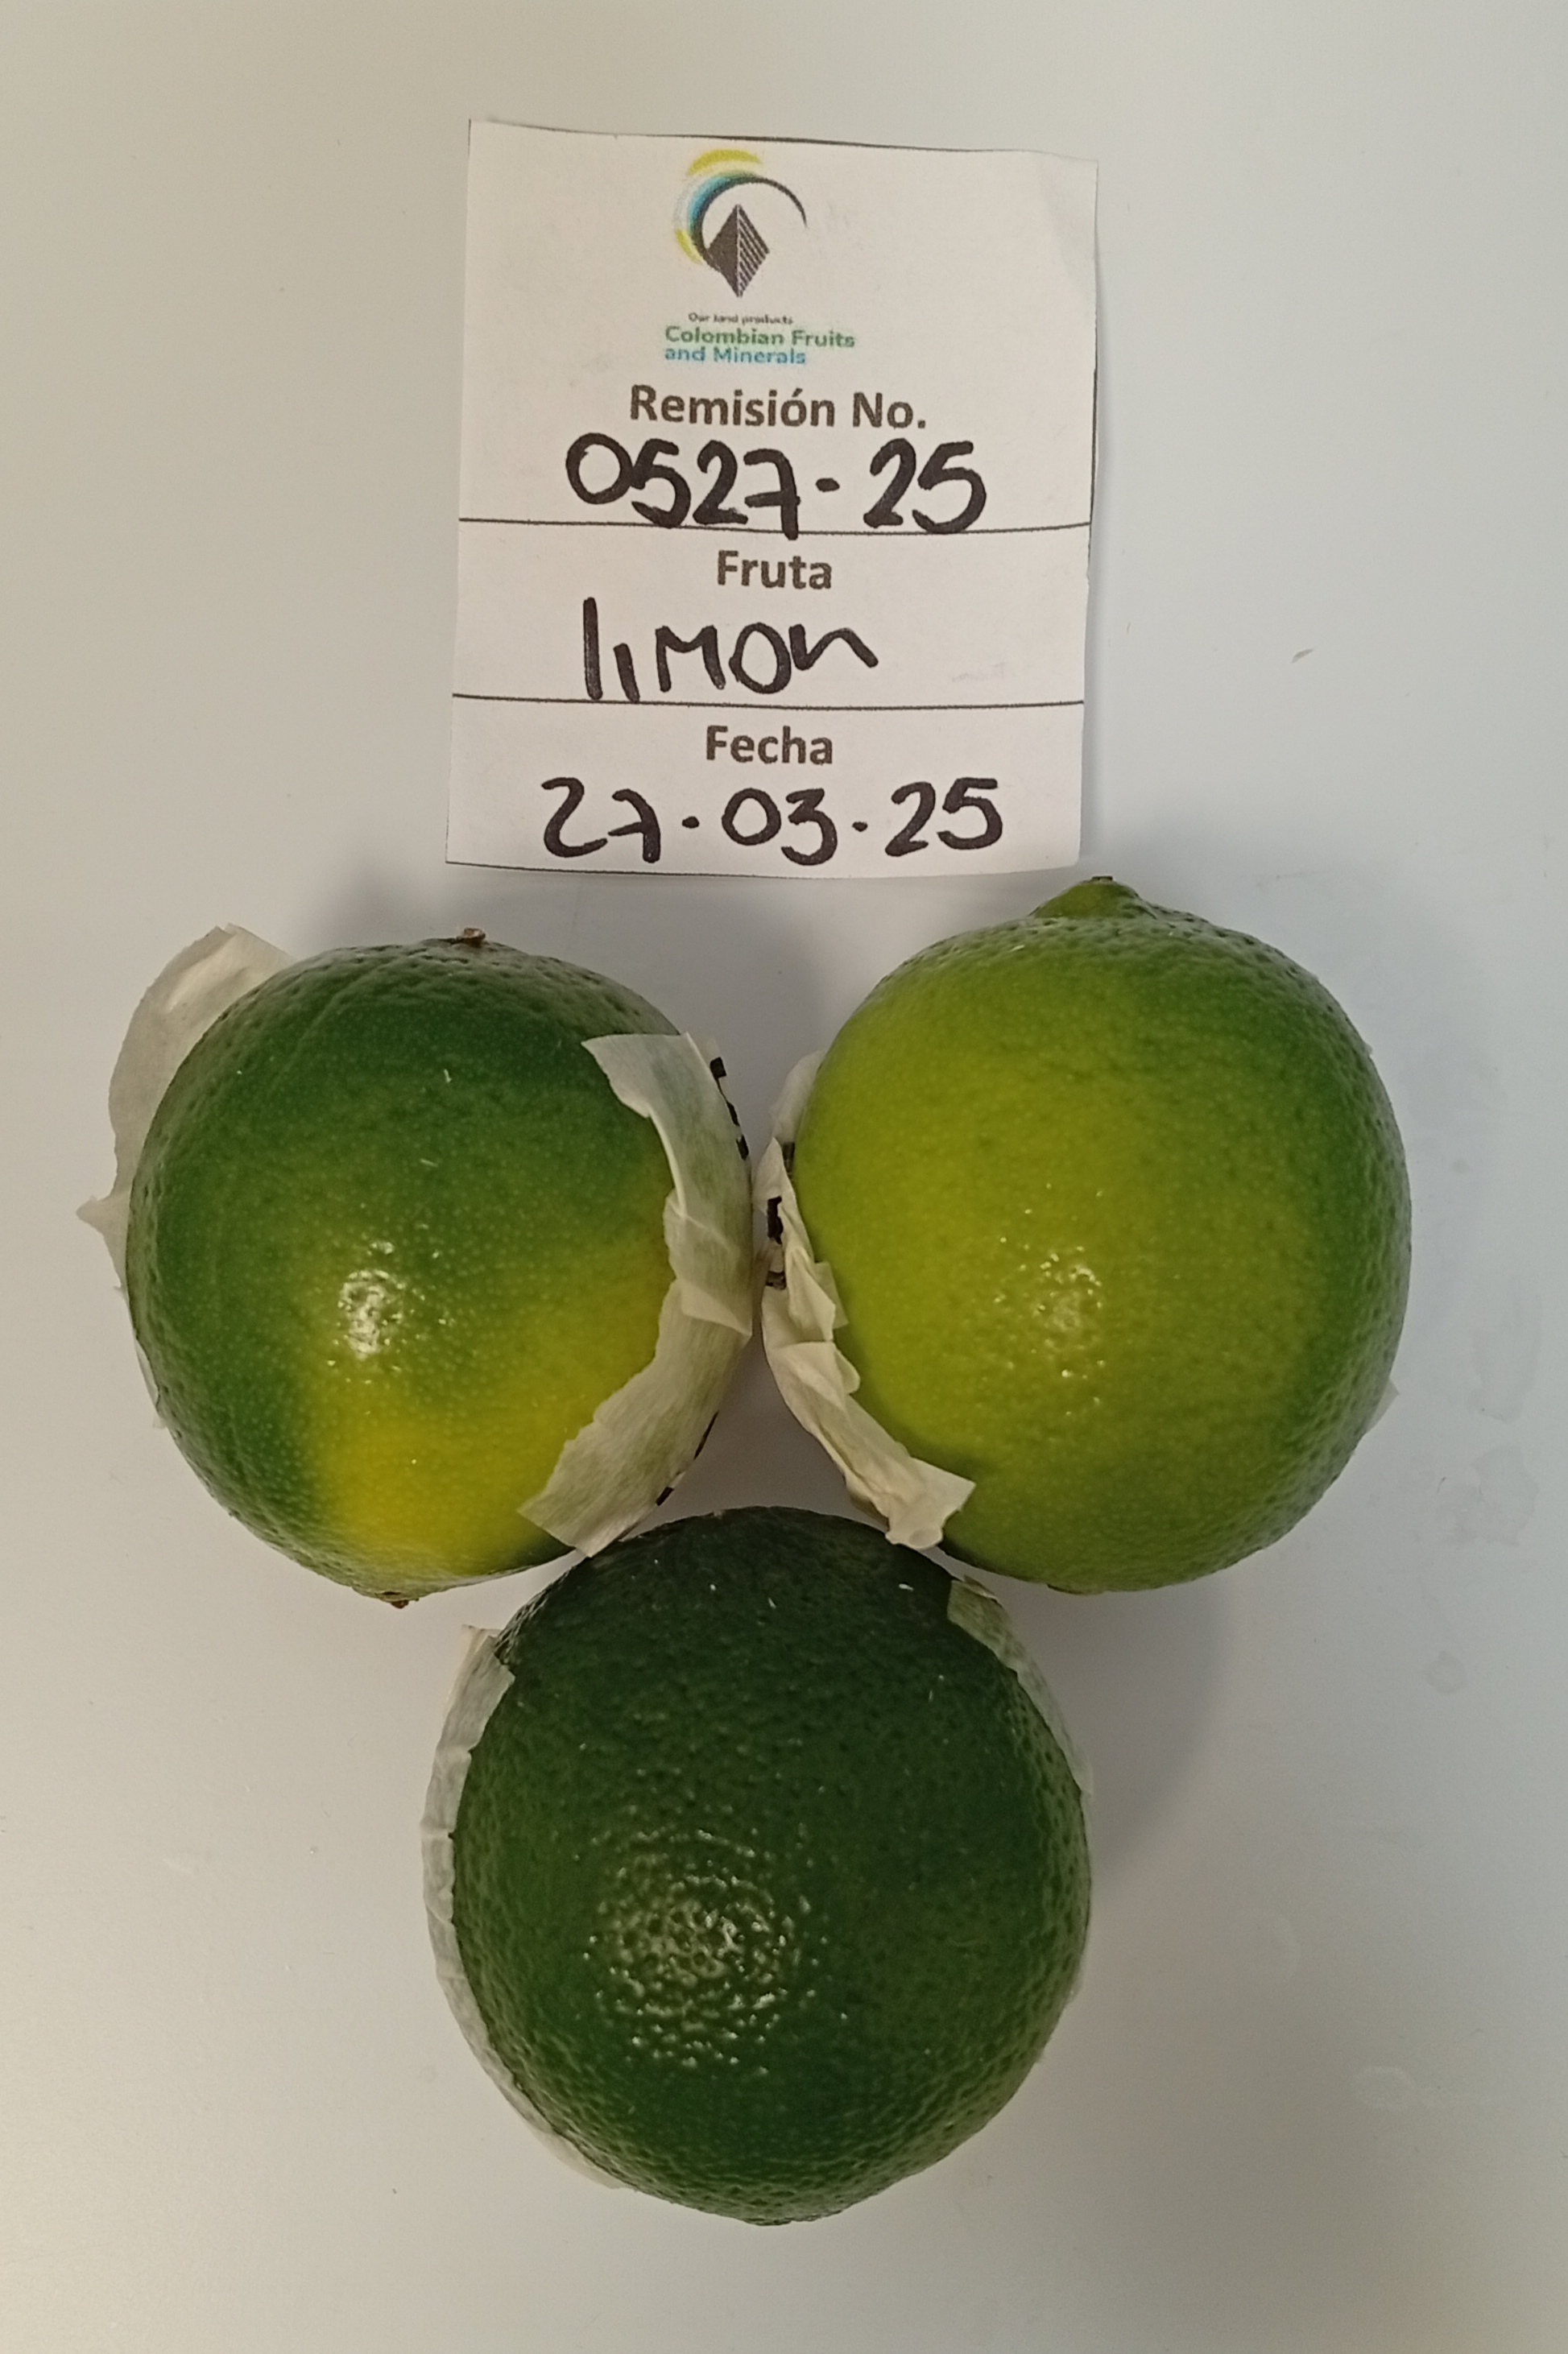 Our land products
Colombian Fruits
and Minerals
Remisión No.
0527-25
Fruta
limon
Fecha
27.03.25